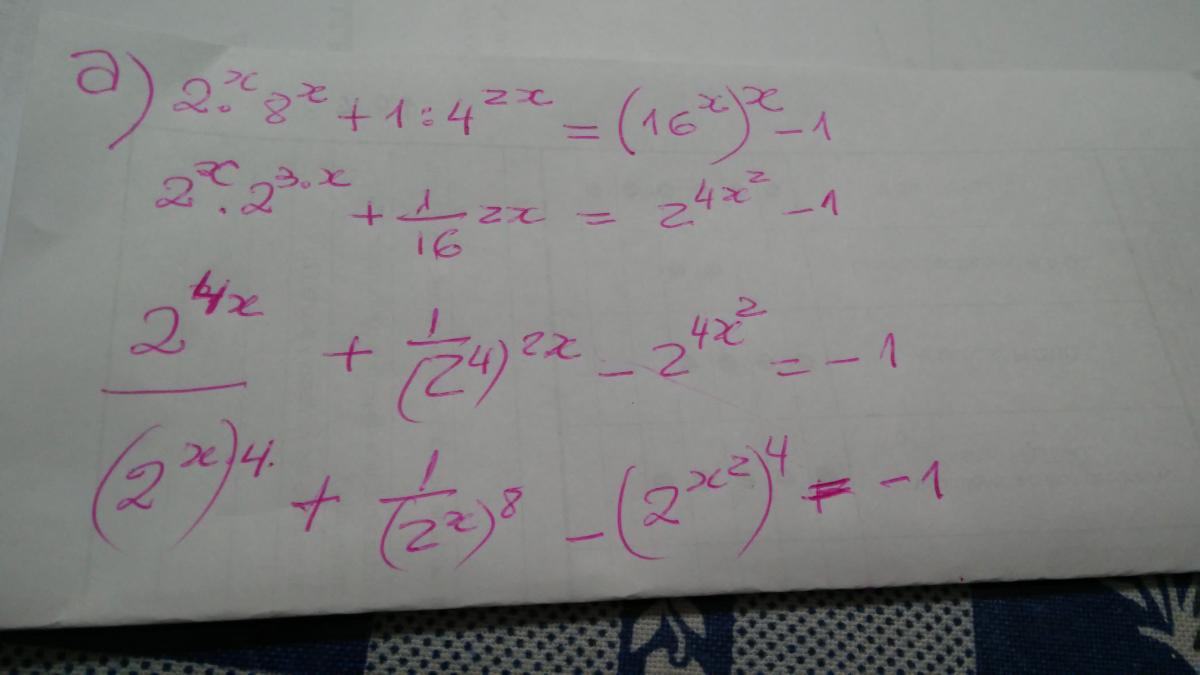 a) 2^x · 8^x + 1 : 4^{2x} = (16^x)^x - 1
2^x · 2^{3·x} + \frac{1}{16} 2x = 2^{4x^2} - 1
2^{4x} + \frac{1}{(2^4)^{2x}} - 2^{4x^2} = -1
(2^x)^4 + \frac{1}{(2^x)^8} - (2^{x^2})^4 = -1